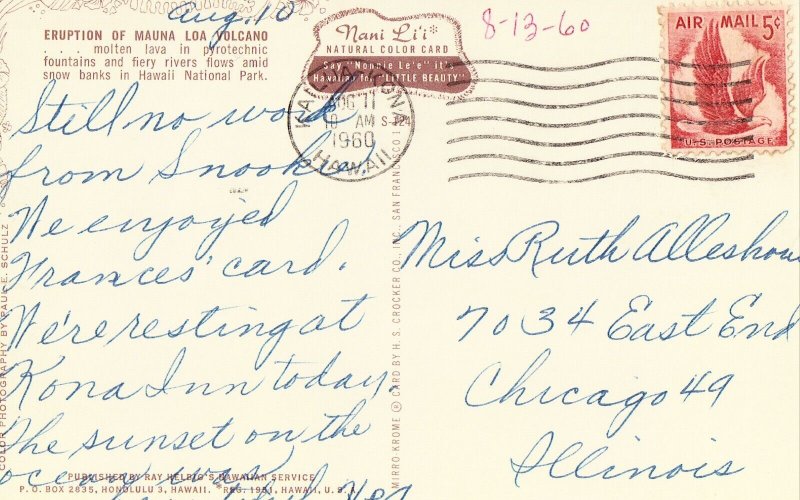 Aug. 10
8-13-60
ERUPTION OF MAUNA LOA VOLCANO
. . . molten lava in pyrotechnic
fountains and fiery rivers flows amid
snow banks in Hawaii National Park.
Nani Li'i*
NATURAL COLOR CARD
Say "Nonnie Le'e" it's
Hawaiian for "LITTLE BEAUTY"
AIR MAIL 5¢
U.S. POSTAGE
AUG 11
10 AM
1960
HAWAII
Still no word
from Snooks
We enjoyed
Frances' card.
We're resting at
Kona Inn today.
The sunset on the
ocean was
Miss Ruth Alleshou
7034 East End
Chicago 49
Illinois
COLOR PHOTOGRAPHY BY PAUL E. SCHULZ
MIRRO-KROME ® CARD BY H. S. CROCKER CO., INC., SAN FRANCISCO 1
PUBLISHED BY RAY HELBIG'S HAWAIIAN SERVICE
P. O. BOX 2835, HONOLULU 3, HAWAII. *REG. 1951, HAWAII, U. S. A.